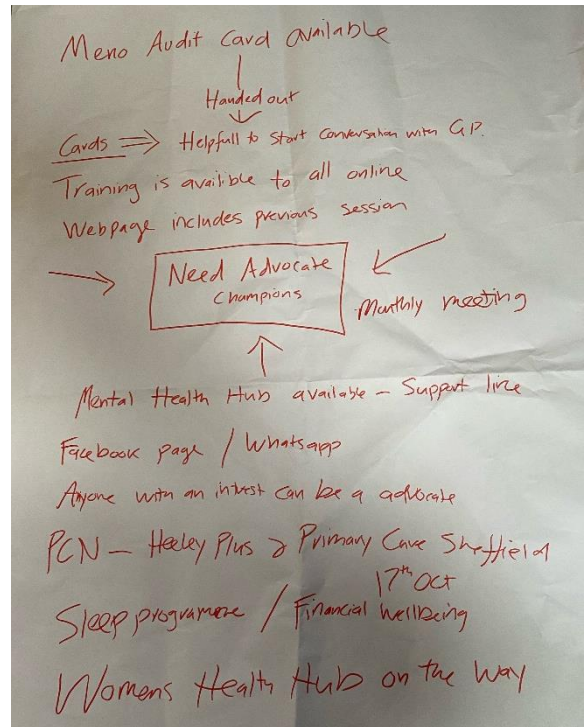 Meno Audit Card available
Handed out
Cards ⇒ Helpfull to start conversation with GP.
Training is availible to all online
Webpage includes previous session
Need Advocate
Champions
Monthly meeting
Mental Health Hub available - Support line
Facebook page / Whatsapp
Anyone with an intrest can be a advocate
PCN - Heeley Plus & Primary Care Sheffield
17th Oct
Sleep programme / Financial Wellbeing
Womens Health Hub on the way